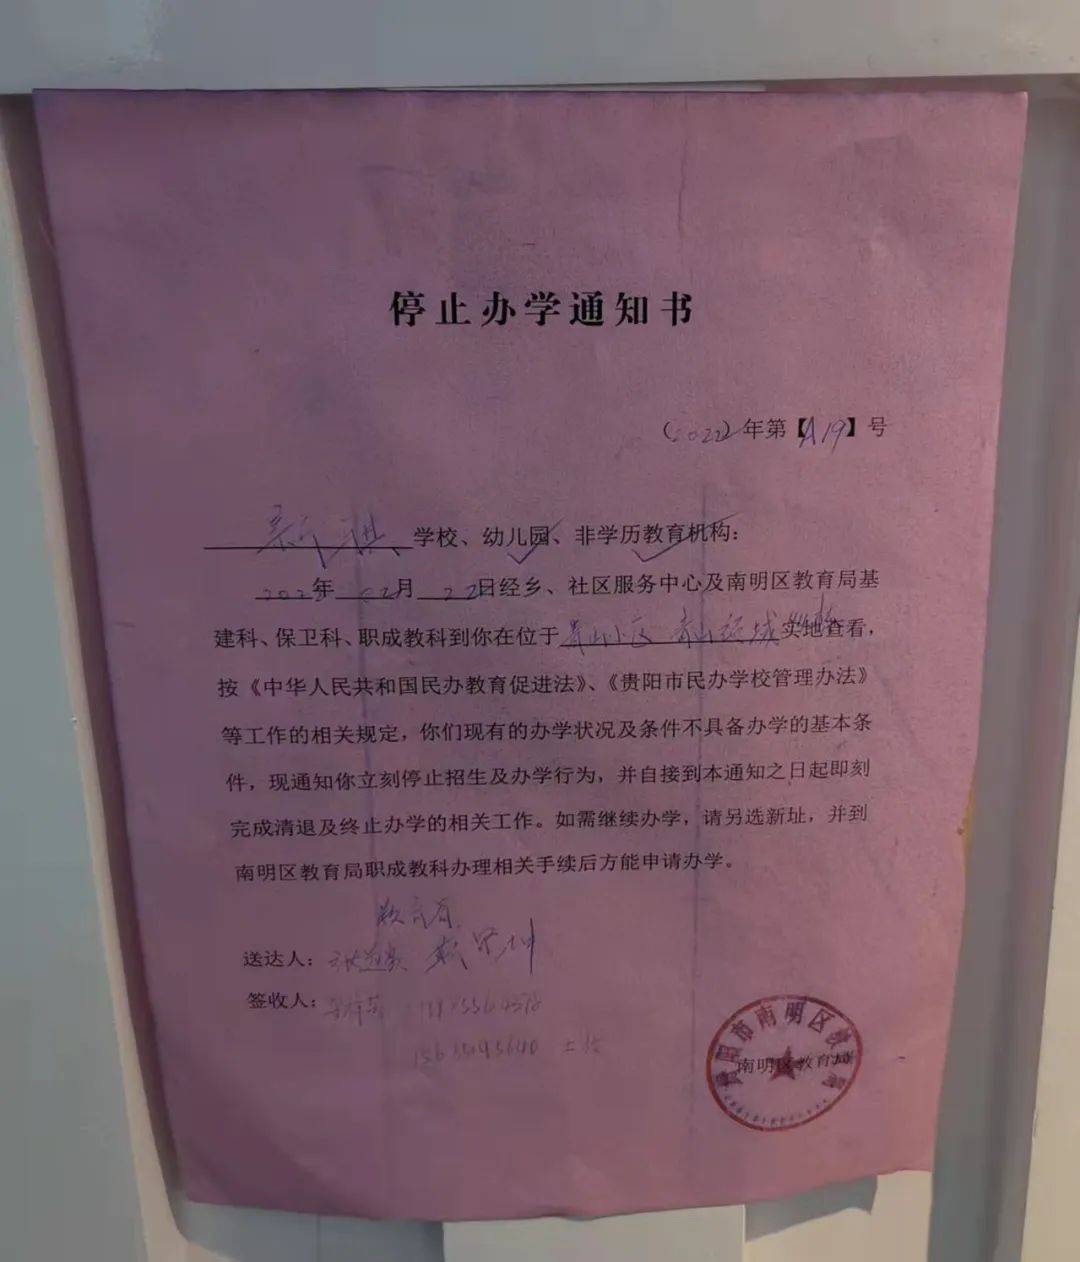 停止办学通知书
（2022）年第【A19】号
学校、幼儿园、非学历教育机构：
2022年02月22日经乡、社区服务中心及南明区教育局基
建科、保卫科、职成教科到你在位于实地查看，
按《中华人民共和国民办教育促进法》、《贵阳市民办学校管理办法》
等工作的相关规定，你们现有的办学状况及条件不具备办学的基本条
件，现通知你立刻停止招生及办学行为，并自接到本通知之日起即刻
完成清退及终止办学的相关工作。如需继续办学，请另选新址，并到
南明区教育局职成教科办理相关手续后方能申请办学。
送达人：
签收人：
贵阳市南明区教育局
南明区教育局